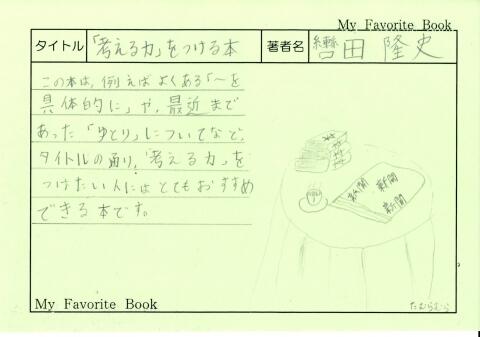 My Favorite Book
タイトル 「考える力」をつける本 著者名 轡田 隆史
この本は、例えばよくある「〜を
具体的に」や、最近まで
あった「ゆとり」についてなど、
タイトルの通り、「考える力」を
つけたい人にはとてもおすすめ
できる本です。
新聞 新聞
新聞
たむらむら
My Favorite Book